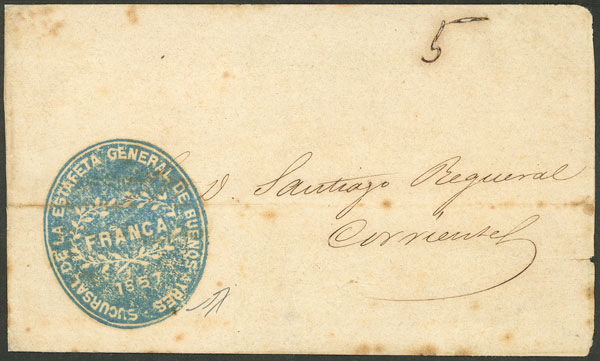 5
SUCURSAL DE LA ESTAFETA GENERAL DE BUENOS AIRES
FRANCA
1857
D. Santiago Regueral
Corrientes